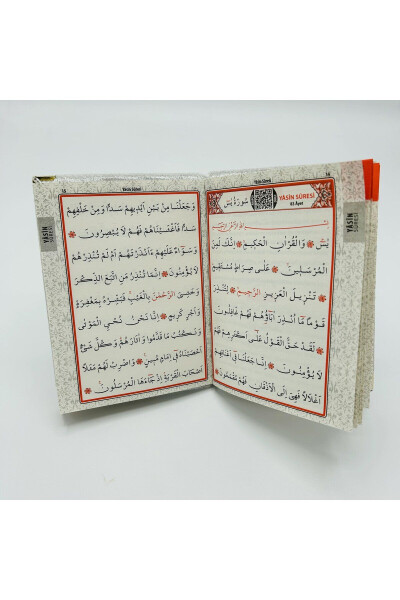 Yâsîn Sûresi
14
سُورَةُ يٰسٓ
YÂSÎN SÛRESİ
83 Âyet
يٰسٓ وَالْقُرْاٰنِ الْحَكِيمِ اِنَّكَ لَمِنَ
الْمُرْسَلِينَ عَلٰى صِرَاطٍ مُسْتَقِيمٍ
تَنْزِيلَ الْعَزِيزِ الرَّحِيمِ لِتُنْذِرَ
قَوْمًا مَٓا اُنْذِرَ اٰبَٓاؤُهُمْ فَهُمْ غَافِلُونَ
لَقَدْ حَقَّ الْقَوْلُ عَلٰٓى اَكْثَرِهِمْ فَهُمْ
لَا يُؤْمِنُونَ اِنَّا جَعَلْنَا فِٓى اَعْنَاقِهِمْ
اَغْلَالًا فَهِىَ اِلَى الْاَذْقَانِ فَهُمْ مُقْمَحُونَ
YÂSÎN
SÛRESİ
Yâsîn Sûresi
وَجَعَلْنَا مِنْ بَيْنِ اَيْدِيهِمْ سَدًّا وَمِنْ خَلْفِهِمْ
سَدًّا فَاَغْشَيْنَاهُمْ فَهُمْ لَا يُبْصِرُونَ
وَسَوَٓاءٌ عَلَيْهِمْ ءَاَنْذَرْتَهُمْ اَمْ لَمْ تُنْذِرْهُمْ
لَا يُؤْمِنُونَ اِنَّمَا تُنْذِرُ مَنِ اتَّبَعَ الذِّكْرَ
وَخَشِىَ الرَّحْمٰنَ بِالْغَيْبِ فَبَشِّرْهُ بِمَغْفِرَةٍ
وَاَجْرٍ كَرِيمٍ اِنَّا نَحْنُ نُحْيِ الْمَوْتٰى
وَنَكْتُبُ مَا قَدَّمُوا وَاٰثَارَهُمْ وَكُلَّ شَىْءٍ
اَحْصَيْنَاهُ فِٓى اِمَامٍ مُبِينٍ وَاضْرِبْ لَهُمْ مَثَلًا
اَصْحَابَ الْقَرْيَةِ اِذْ جَٓاءَهَا الْمُرْسَلُونَ